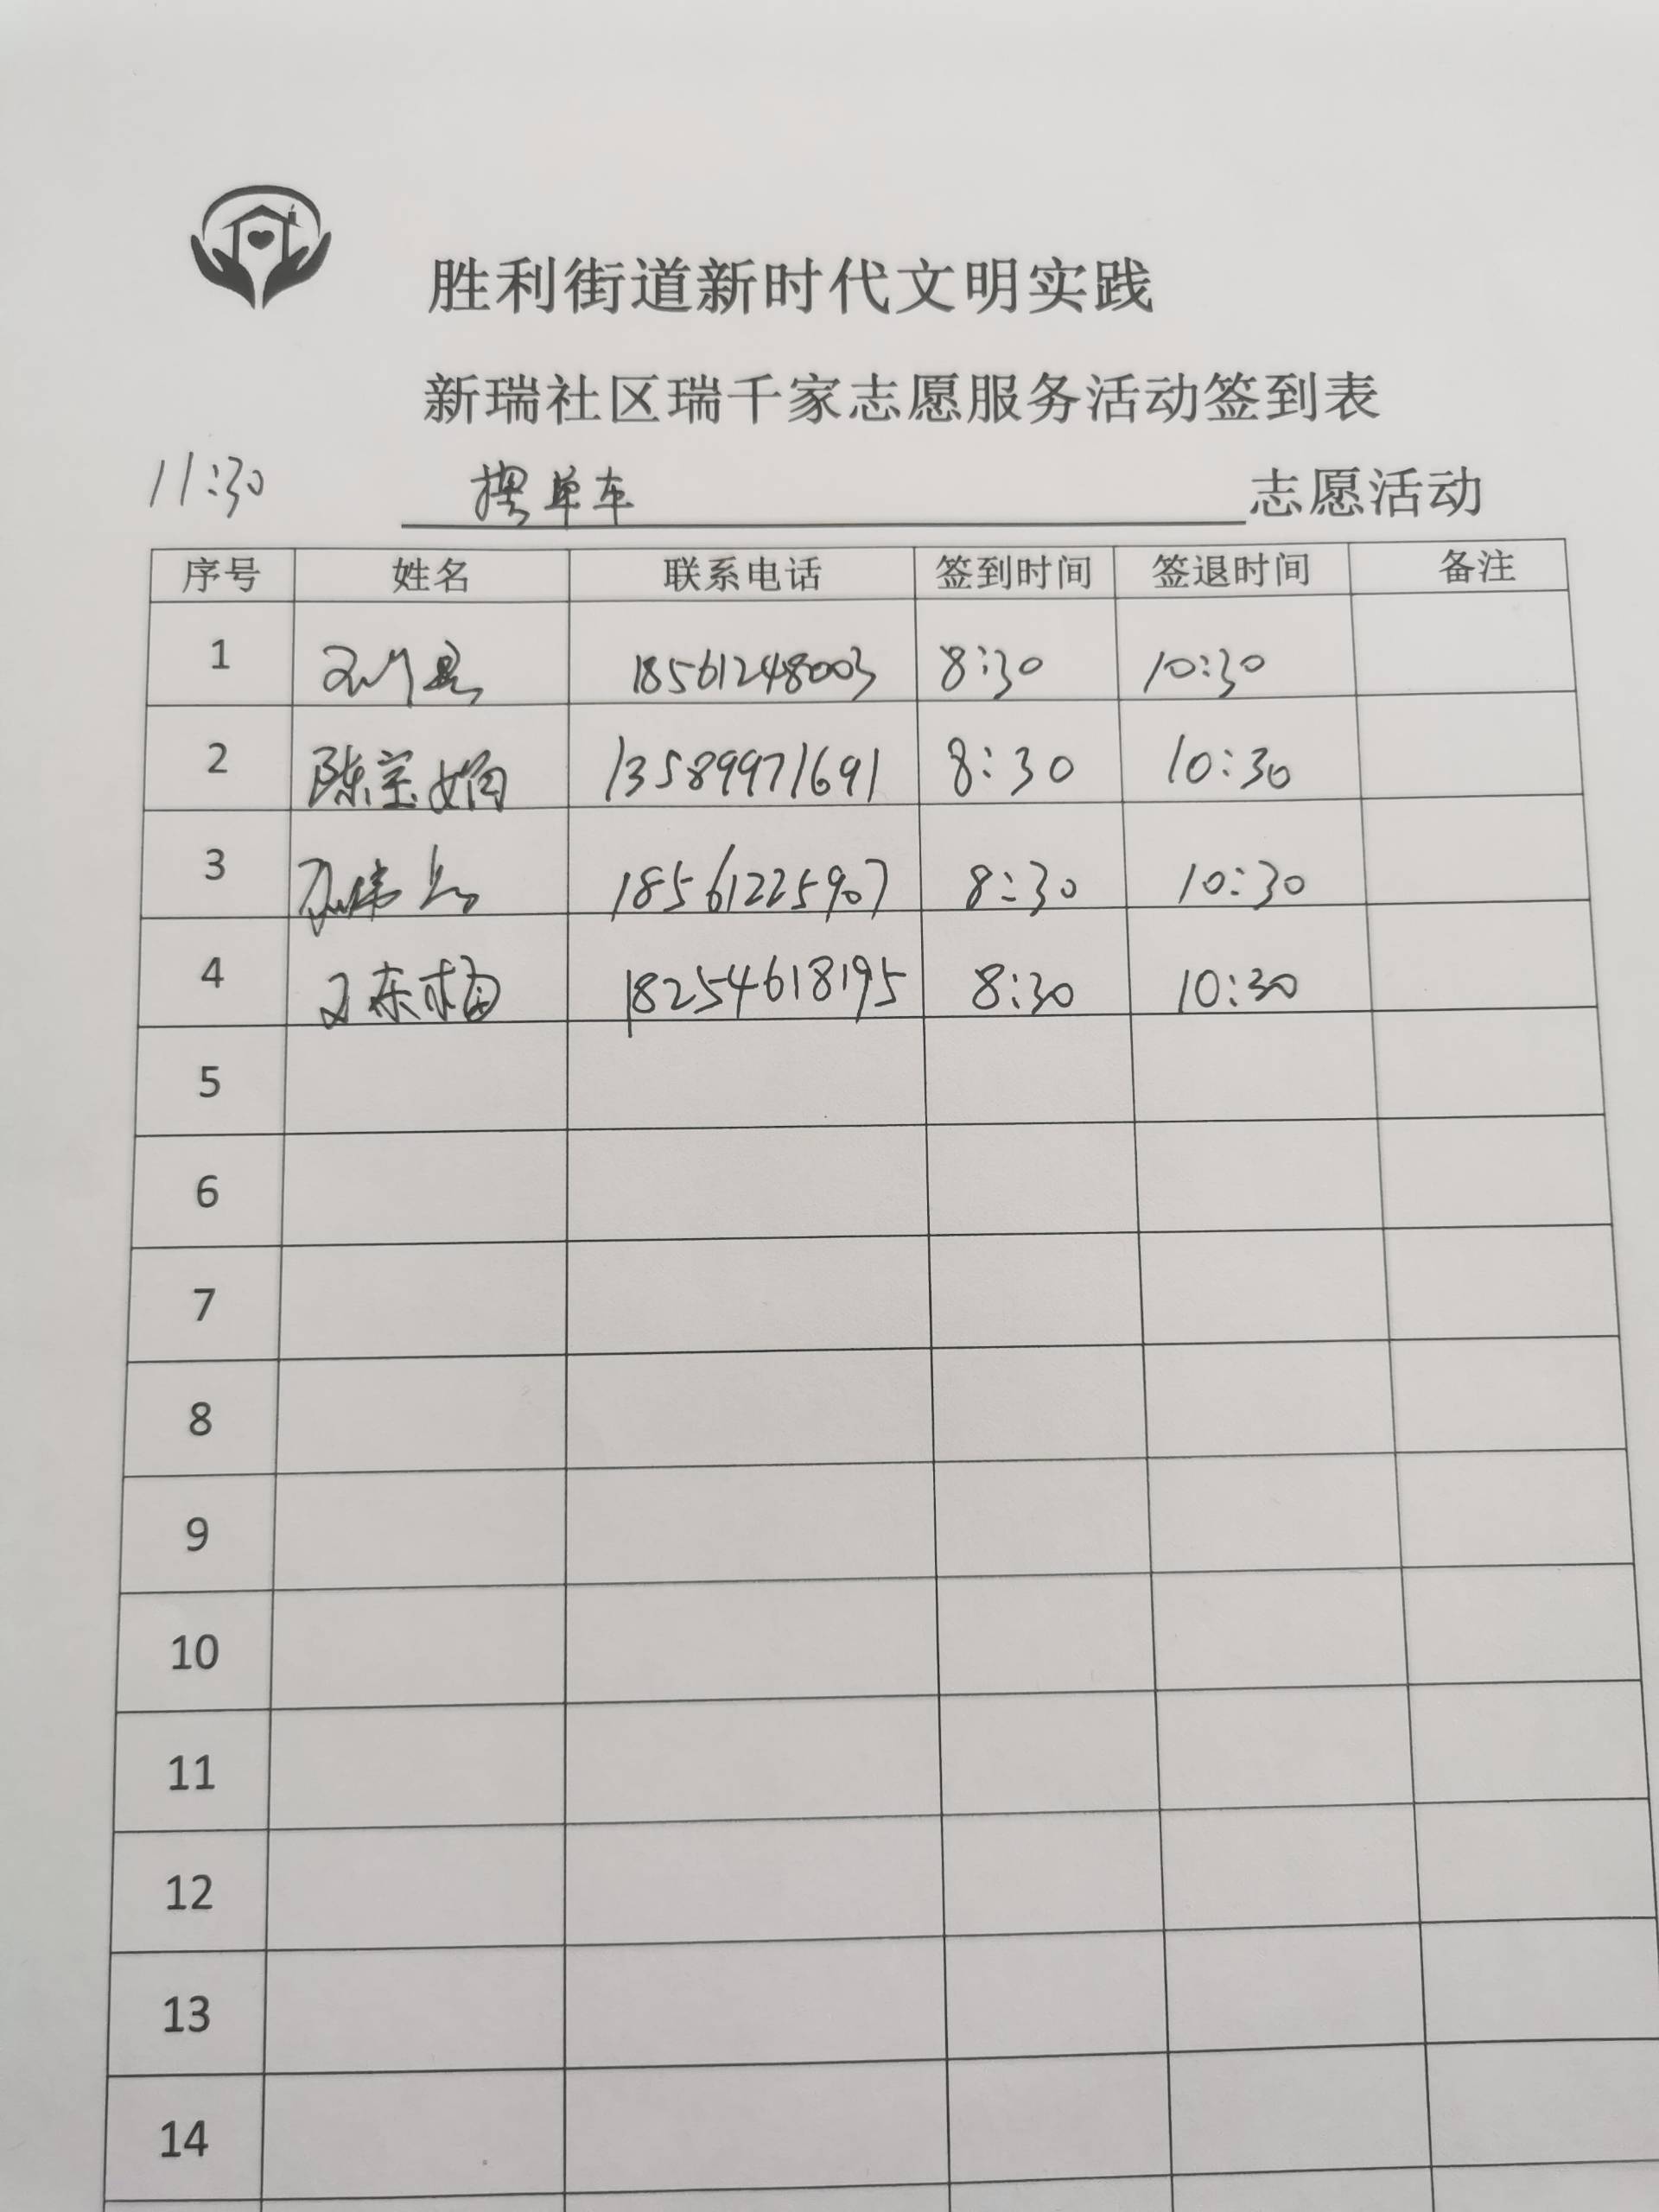 胜利街道新时代文明实践
新瑞社区瑞千家志愿服务活动签到表
11:30 摆单车 志愿活动
序号 姓名 联系电话 签到时间 签退时间 备注
1 18561248003 8:30 10:30
2 陈宝娟 13589971691 8:30 10:30
3 18561225907 8:30 10:30
4 18254618195 8:30 10:30
5
6
7
8
9
10
11
12
13
14